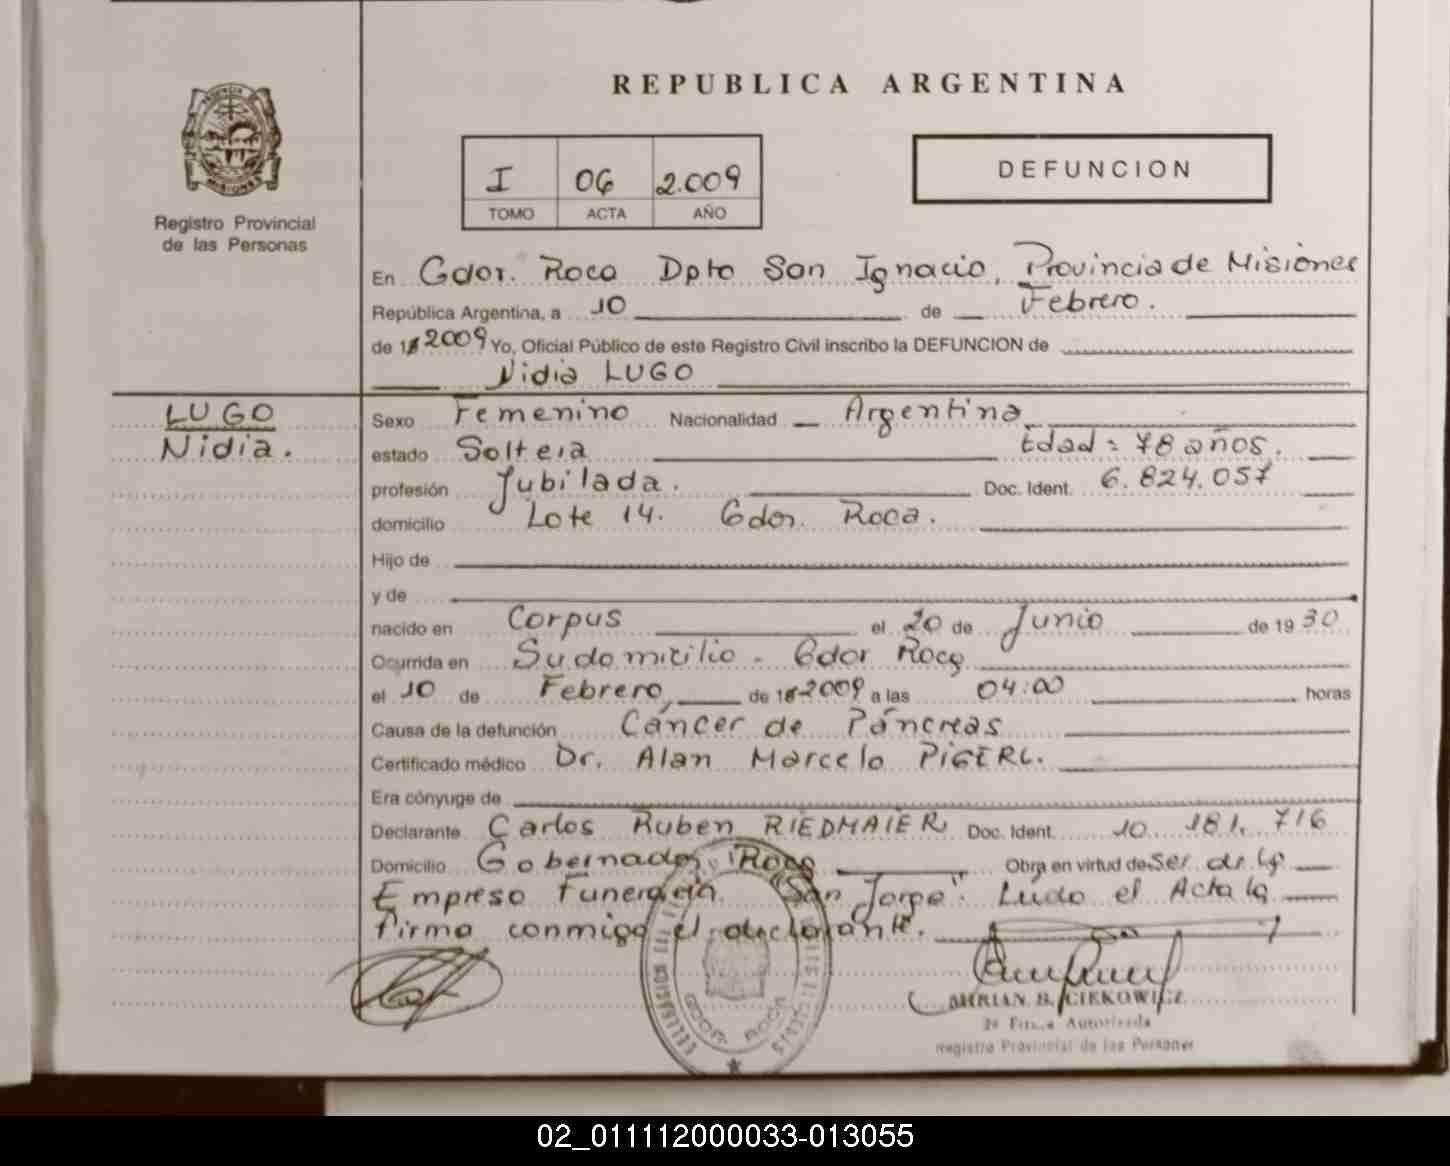 REPUBLICA ARGENTINA
I 06 2.009
TOMO ACTA AÑO
DEFUNCION
PROVINCIA DE
MISIONES
Registro Provincial
de las Personas
En Gdor. Roca Dpto San Ignacio, Provincia de Misiones
República Argentina, a 10 de Febrero.
de 1 2009 Yo, Oficial Público de este Registro Civil inscribo la DEFUNCION de
Nidia LUGO
LUGO
Nidia.
Sexo Femenino Nacionalidad Argentina
estado Soltera Edad = 78 años.
profesión Jubilada. Doc. Ident. 6.824.057
domicilio Lote 14. Gdor. Roca.
Hijo de
y de
nacido en Corpus el 20 de Junio de 1930
Ocurrida en Su domicilio - Gdor Roca
el 10 de Febrero, de 1 2009 a las 04:00 horas
Causa de la defunción Cáncer de Páncreas
Certificado médico Dr. Alan Marcelo
Era cónyuge de
Declarante Carlos Ruben RIEDMAIER Doc. Ident. 10.181.716
Domicilio Gobernador Roca Obra en virtud de Ser de la
Empresa Funeraria "San Jorge". Leído el Acta la
firma conmigo el declarante.
GDOR ROCA
2ª Firma Autorizada
Registro Provincial de las Personas
02_011112000033-013055